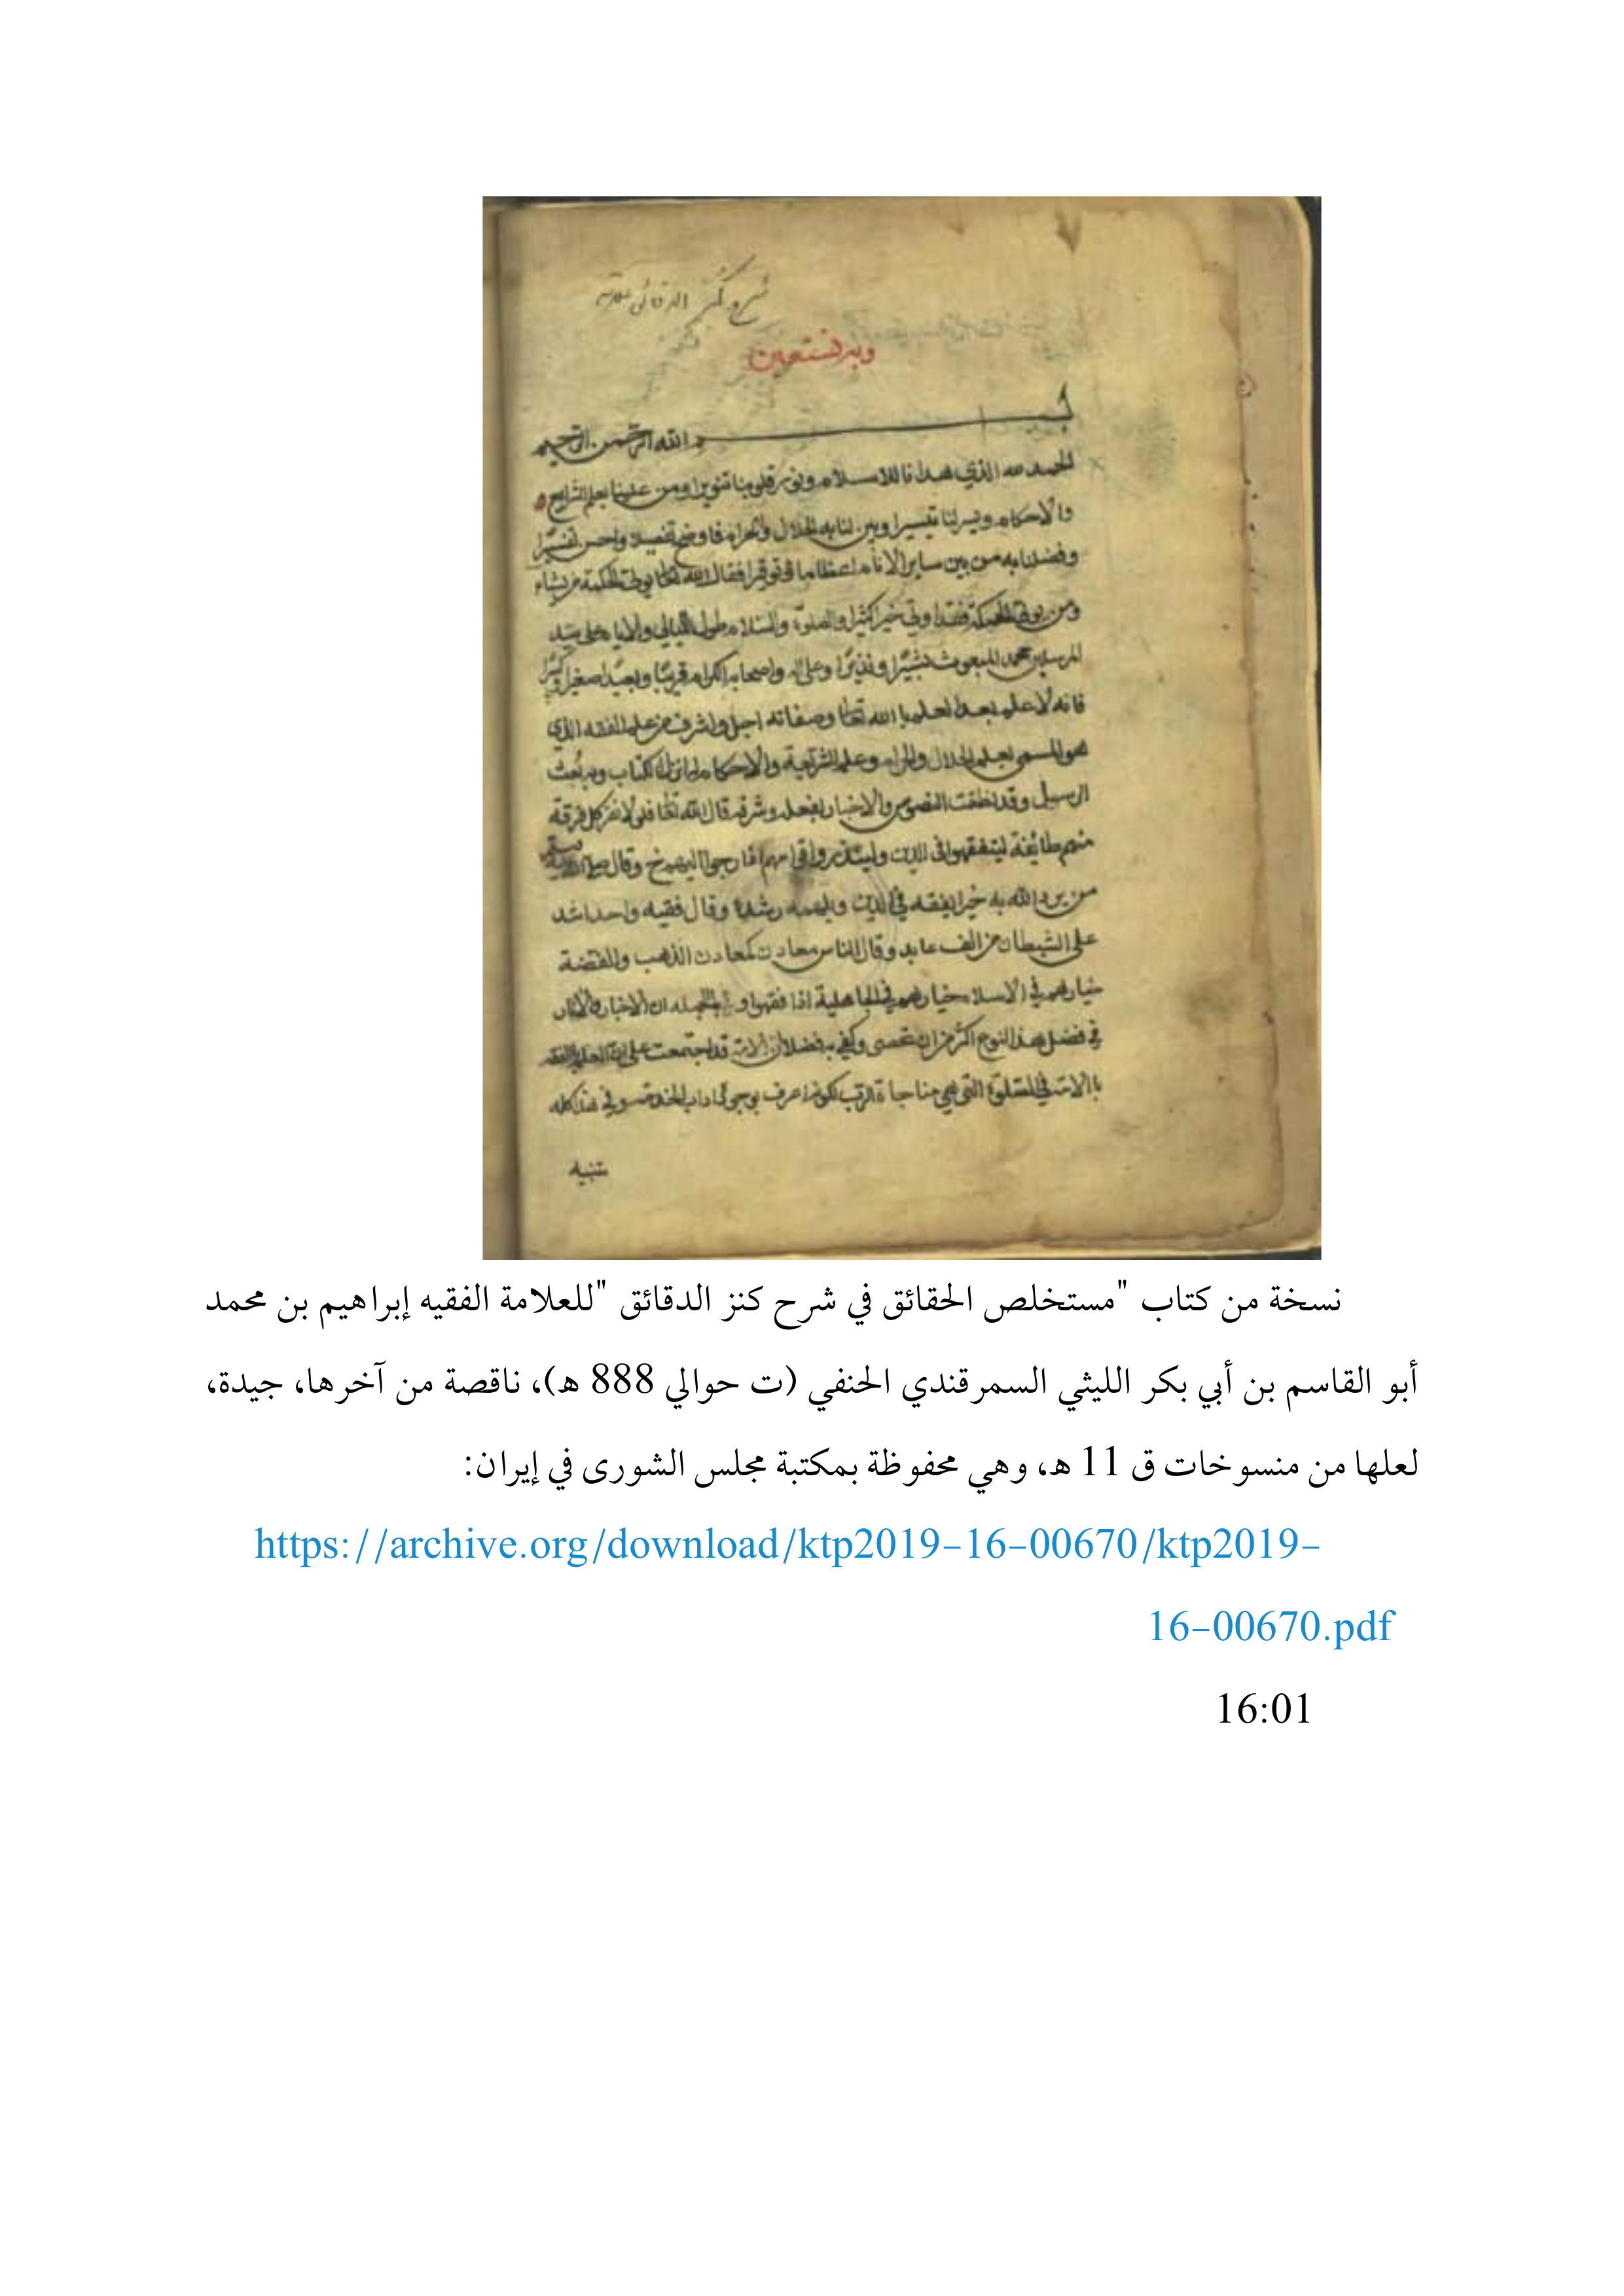 شرح كنز الدقائق
وبه نستعين
بسم الله الرحمن الرحيم
الحمد لله الذي هدانا للاسلام ونور قلوبنا تنويرا ومن علينا بعلم الشرايع
والاحكام ويسر لنا تيسيرا وبين لنا به الحلال والحرام فاوضح تفصيلا واحسن تفسيرا
وفضلنا به من بين ساير الانام اعظاما وتوقيرا فقال الله تعالى يوتي الحكمة من يشاء
ومن يوتي الحكمة فقد اوتي خيرا كثيرا والصلوة والسلام طول الليالي والايام على سيد
المرسلين محمد المبعوث بشيرا ونذيرا وعلى اله واصحابه الكرام قريبا وبعيدا صغيرا وكبيرا
فانه لا علم بعد العلم بالله تعالى وصفاته اجل واشرف من علم الفقه الذي
هو المسمى بعلم الحلال والحرام وعلم الشرايع والاحكام له انزل الكتاب وبه بعث
الرسل وقد نطقت النصوص والاخبار بفضله وشرفه قال الله تعالى فلولا نفر من كل فرقة
منهم طائفة ليتفقهوا في الدين ولينذروا قومهم اذا رجعوا اليهم وقال
من يرد الله به خيرا يفقه في الدين ويلهمه رشده وقال فقيه واحد اشد
على الشيطان من الف عابد وقال الناس معادن كمعادن الذهب والفضة
خيارهم في الاسلام خيارهم في الجاهلية اذا فقهوا وبالجملة ان الاخبار والاثار
في فضل هذا النوع اكثر من ان تحصى وكفى به فضلا ان الامة قد اجتمعت على ان
في الصلوة التي هي مناجاة الرب
تنبيه
نسخة من كتاب "مستخلص الحقائق في شرح كنز الدقائق "للعلامة الفقيه إبراهيم بن محمد
أبو القاسم بن أبي بكر الليثي السمرقندي الحنفي (ت حوالي 888 ه)، ناقصة من آخرها، جيدة،
لعلها من منسوخات ق 11 ه، وهي محفوظة بمكتبة مجلس الشورى في إيران:
https://archive.org/download/ktp2019-16-00670/ktp2019-
16-00670.pdf
16:01